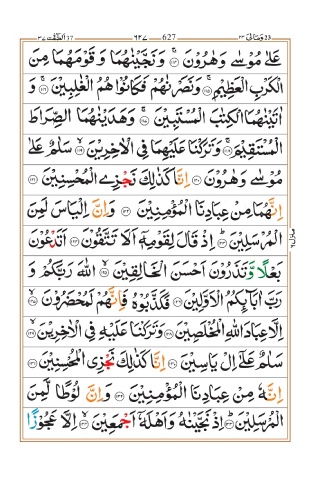 وَمَالِیَ ٢٣ ٦٢٧ 627 اَلصّٰٓفّٰت ٣٧
عَلٰى مُوْسٰى وَهٰرُوْنَ ۝١١٤ وَنَجَّيْنٰهُمَا وَقَوْمَهُمَا مِنَ
الْكَرْبِ الْعَظِيْمِ ۝١١٥ وَنَصَرْنٰهُمْ فَكَانُوْا هُمُ الْغٰلِبِيْنَ ۝١١٦ وَ
اٰتَيْنٰهُمَا الْكِتٰبَ الْمُسْتَبِيْنَ ۝١١٧ وَهَدَيْنٰهُمَا الصِّرَاطَ
الْمُسْتَقِيْمَ ۝١١٨ وَتَرَكْنَا عَلَيْهِمَا فِى الْاٰخِرِيْنَ ۝١١٩ سَلٰمٌ عَلٰى
مُوْسٰى وَهٰرُوْنَ ۝١٢٠ اِنَّا كَذٰلِكَ نَجْزِى الْمُحْسِنِيْنَ ۝١٢١
اِنَّهُمَا مِنْ عِبَادِنَا الْمُؤْمِنِيْنَ ۝١٢٢ وَاِنَّ اِلْيَاسَ لَمِنَ
الْمُرْسَلِيْنَ ۝١٢٣ اِذْ قَالَ لِقَوْمِهٖٓ اَلَا تَتَّقُوْنَ ۝١٢٤ اَتَدْعُوْنَ
بَعْلًا وَّتَذَرُوْنَ اَحْسَنَ الْخَالِقِيْنَ ۝١٢٥ اللّٰهَ رَبَّكُمْ وَ
رَبَّ اٰبَآئِكُمُ الْاَوَّلِيْنَ ۝١٢٦ فَكَذَّبُوْهُ فَاِنَّهُمْ لَمُحْضَرُوْنَ ۝١٢٧
اِلَّا عِبَادَ اللّٰهِ الْمُخْلَصِيْنَ ۝١٢٨ وَتَرَكْنَا عَلَيْهِ فِى الْاٰخِرِيْنَ ۝١٢٩
سَلٰمٌ عَلٰٓى اِلْ يَاسِيْنَ ۝١٣٠ اِنَّا كَذٰلِكَ نَجْزِى الْمُحْسِنِيْنَ ۝١٣١
اِنَّهٗ مِنْ عِبَادِنَا الْمُؤْمِنِيْنَ ۝١٣٢ وَاِنَّ لُوْطًا لَّمِنَ
الْمُرْسَلِيْنَ ۝١٣٣ اِذْ نَجَّيْنٰهُ وَاَهْلَهٗٓ اَجْمَعِيْنَ ۝١٣٤ اِلَّا عَجُوْزًا